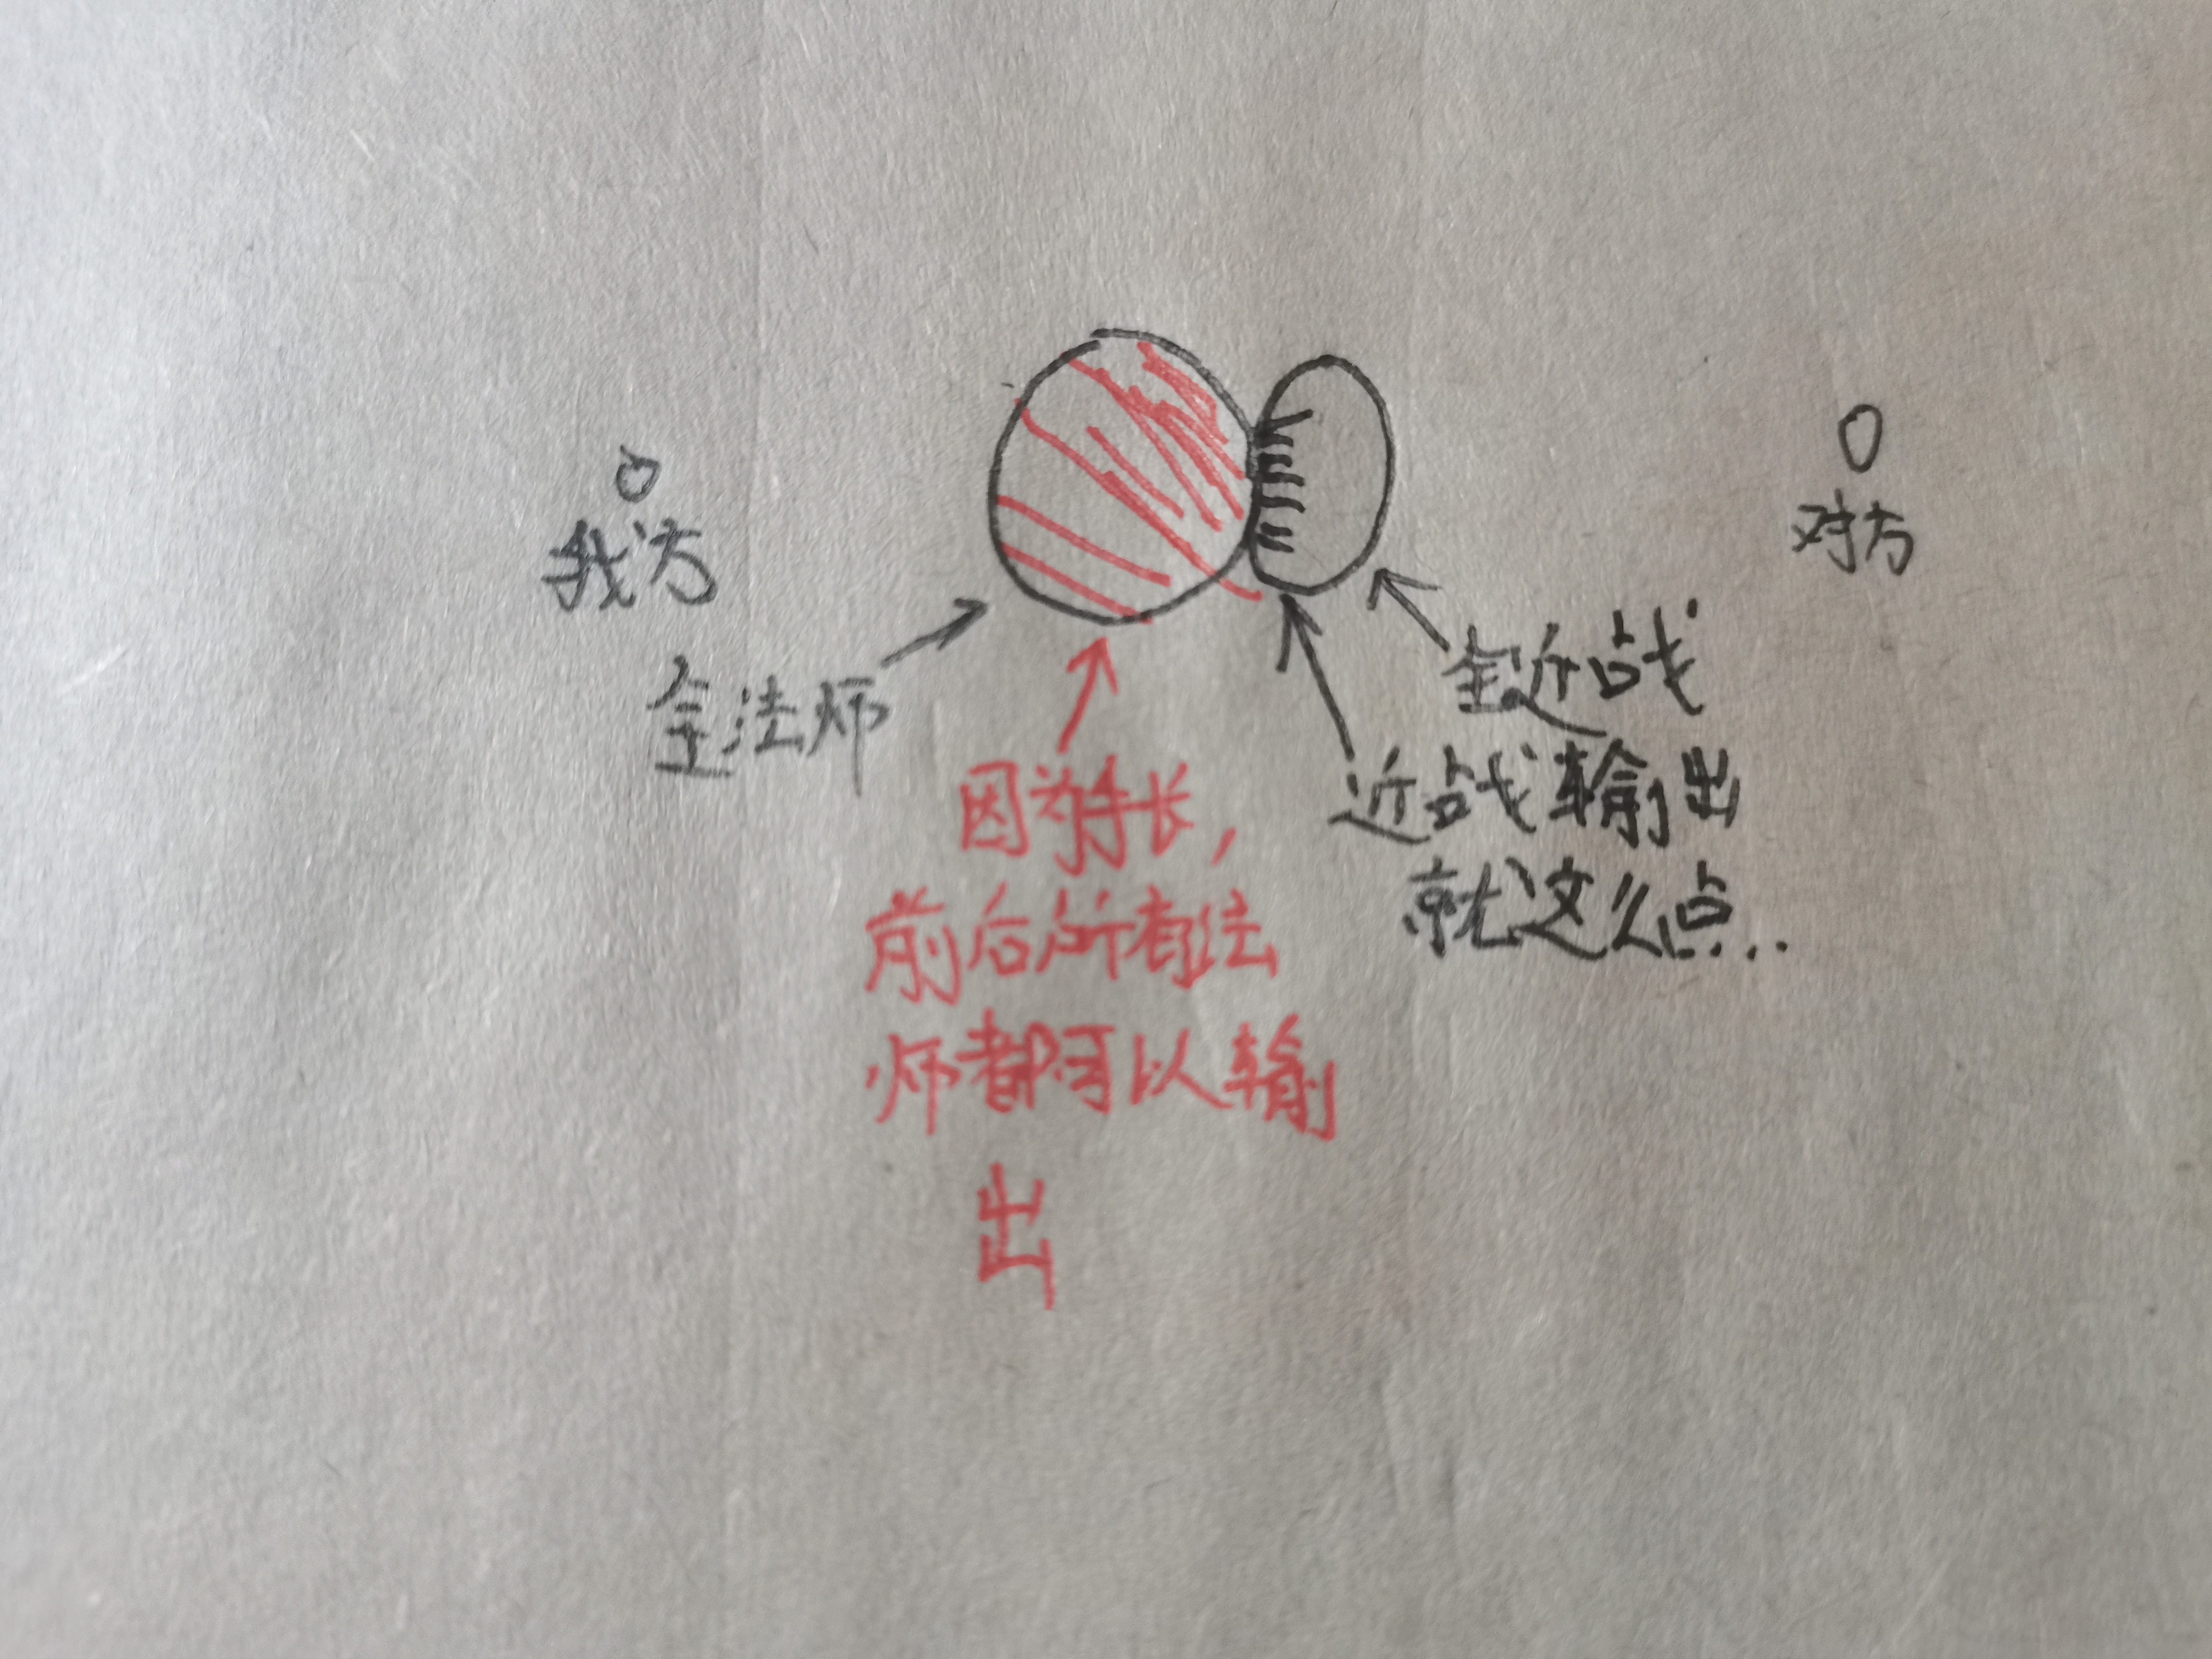 我方
对方
全法师
全近战
近战输出
就这么点...
因为手长，
前后所有法
师都可以输
出